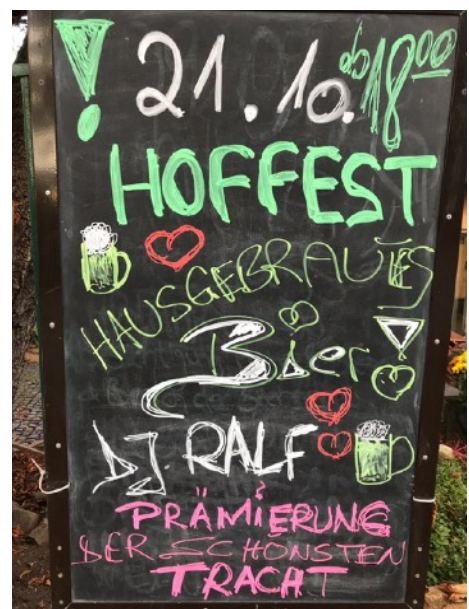 ! 21.10. ab 18⁰⁰
HOFFEST
HAUSGEBRAUTES
Bier
DJ. RALF
PRÄMiERUNG
DER SCHÖNSTEN
TRACHT